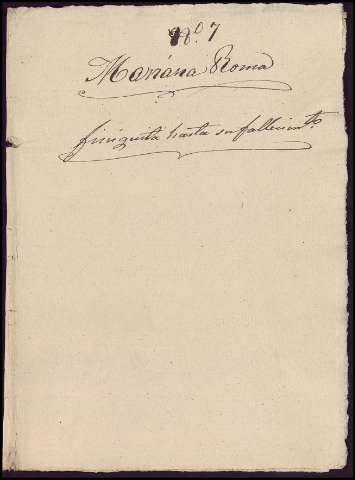 Nº. 7
Mariana Roma
finiquita hasta su fallecimtº.